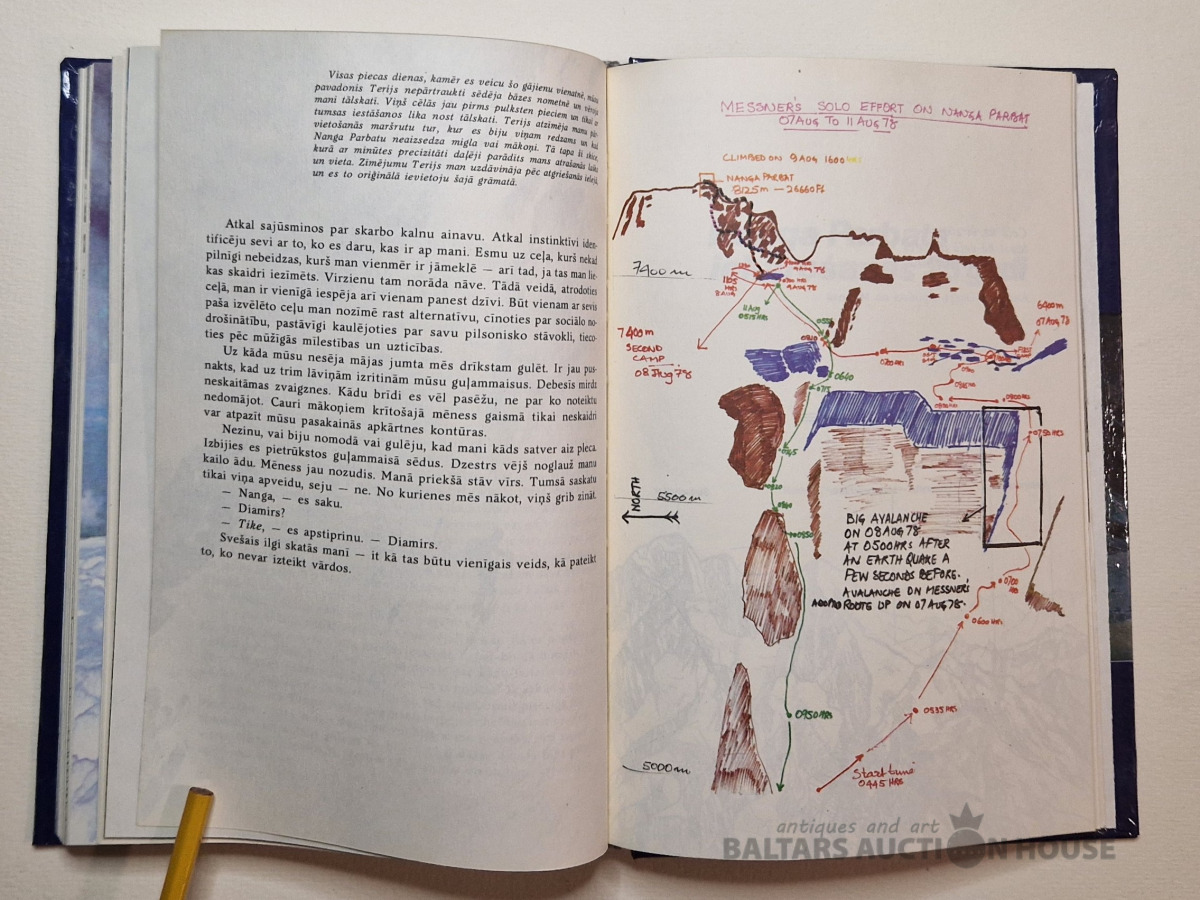 Visas piecas dienas, kamēr es veicu šo gājienu vienatnē, mūsu
pavadonis Terijs nepārtraukti sēdēja bāzes nometnē un vēroja
mani tālskatī. Viņš cēlās jau pirms pulksten pieciem un tikai ar
tumsas iestāšanos lika nost tālskati. Terijs atzīmēja manu pār-
vietošanās maršrutu tur, kur es biju viņam redzams un kad
Nanga Parbatu neaizsedza migla vai mākoņi. Tā tapa šī skice,
kurā ar minūtes precizitāti daļēji parādīts mans atrašanās laiks
un vieta. Zīmējumu Terijs man uzdāvināja pēc atgriešanās ielejā,
un es to oriģinālā ievietoju šajā grāmatā.
Atkal sajūsminos par skarbo kalnu ainavu. Atkal instinktīvi iden-
tificēju sevi ar to, ko es daru, kas ir ap mani. Esmu uz ceļa, kurš nekad
pilnīgi nebeidzas, kurš man vienmēr ir jāmeklē — arī tad, ja tas man lie-
kas skaidri iezīmēts. Virzienu tam norāda nāve. Tādā veidā, atrodoties
ceļā, man ir vienīgā iespēja arī vienam panest dzīvi. Būt vienam ar sevis
paša izvēlēto ceļu man nozīmē rast alternatīvu, cīnoties par sociālo no-
drošinātību, pastāvīgi kaulējoties par savu pilsonisko stāvokli, tieco-
ties pēc mūžīgās mīlestības un uzticības.
Uz kāda mūsu nesēja mājas jumta mēs drīkstam gulēt. Ir jau pus-
nakts, kad uz trim lāviņām izritinām mūsu guļammaisus. Debesīs mirdz
neskaitāmas zvaigznes. Kādu brīdi es vēl pasēžu, ne par ko noteiktu
nedomājot. Cauri mākoņiem krītošajā mēness gaismā tikai neskaidri
var atpazīt mūsu pasakainās apkārtnes kontūras.
Nezinu, vai biju nomodā vai gulēju, kad mani kāds satver aiz pleca.
Izbijies es pietrūkstos guļammaisā sēdus. Dzestrs vējš noglauž manu
kailo ādu. Mēness jau nozudis. Manā priekšā stāv vīrs. Tumsā saskatu
tikai viņa apveidu, seju — ne. No kurienes mēs nākot, viņš grib zināt.
— Nanga, — es saku.
— Diamirs?
— Tike, — es apstiprinu. — Diamirs.
Svešais ilgi skatās manī — it kā tas būtu vienīgais veids, kā pateikt
to, ko nevar izteikt vārdos.
MESSNER'S SOLO EFFORT ON NANGA PARBAT
07 AUG TO 11 AUG 78
CLIMBED ON 9 AUG 1600 HRS
NANGA PARBAT
8125m — 26660 Ft
7400 m
11 AUG
0515 HRS
6400 m
07 AUG 78
7400 m
SECOND
CAMP
08 Aug 78
0640
0715
0645
0750 HRS
NORTH
5500 m
BIG AVALANCHE
ON 08 AUG 78
AT 0500 HRS AFTER
AN EARTH QUAKE A
FEW SECONDS BEFORE.
AVALANCHE ON MESSNER'S
ROOTS UP ON 07 AUG 78.
0700
0600 HRS
0535 HRS
0950 HRS
5000 m
Start time
0445 HRS
antiques and art
BALTARS AUCTION HOUSE